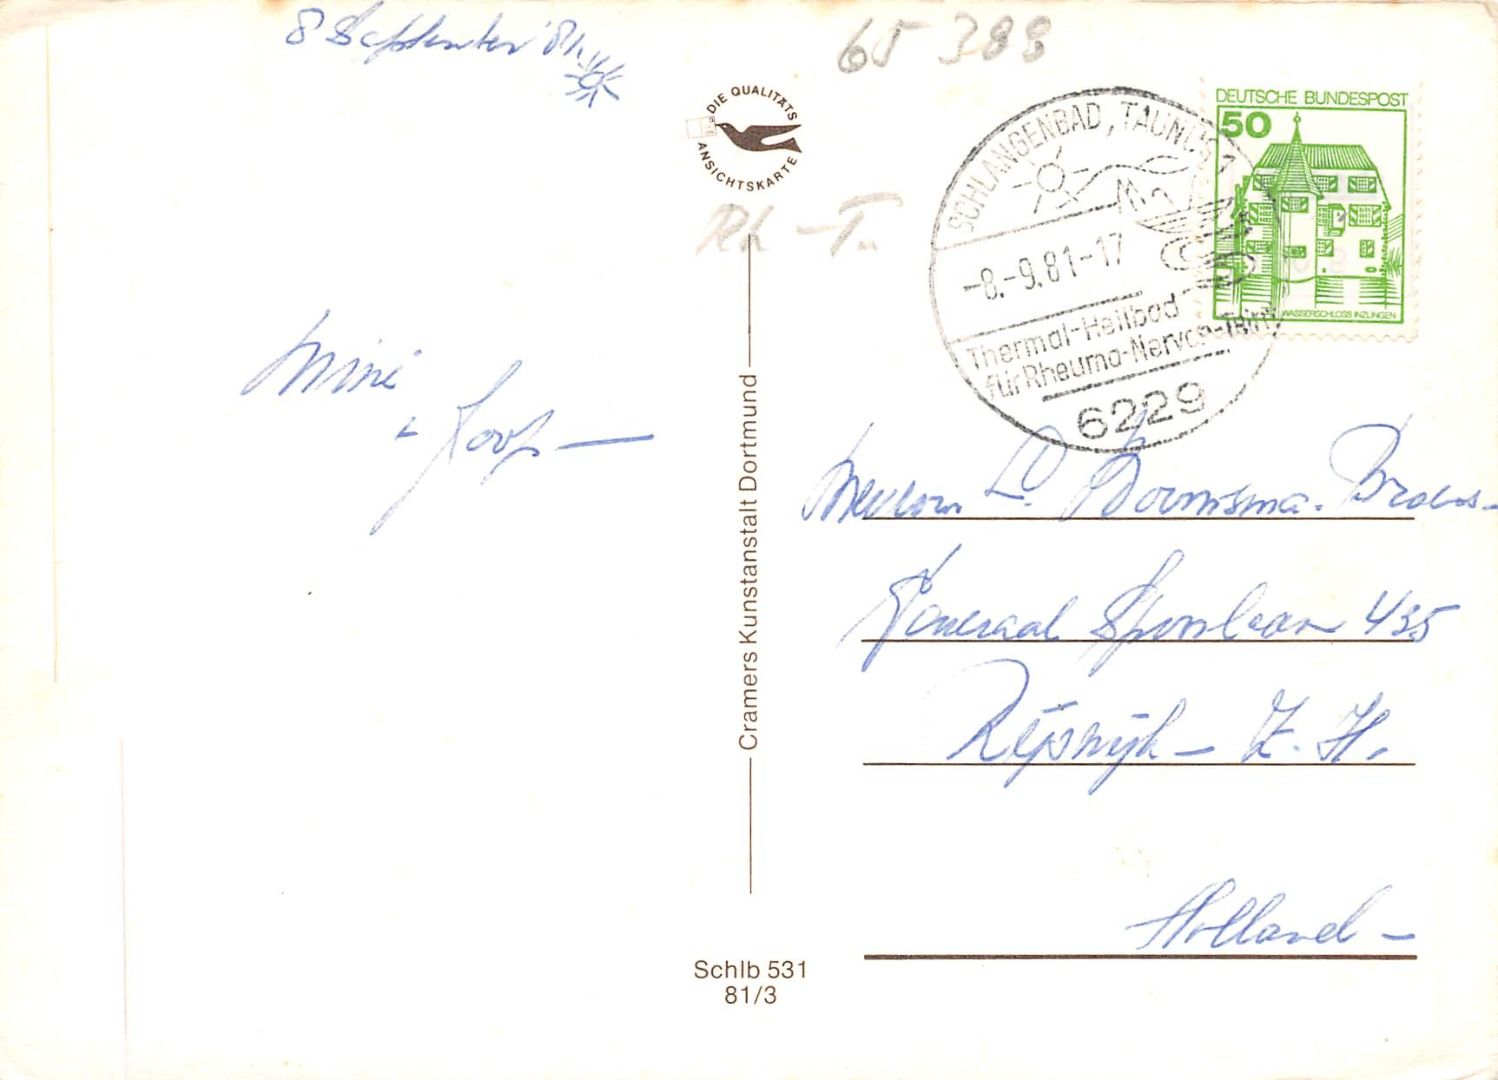 8 September '81
65 388
DIE QUALITÄTS
ANSICHTSKARTE
DEUTSCHE BUNDESPOST
50
WASSERSCHLOSS INZLINGEN
SCHLANGENBAD, TAUNUS 1
-8.-9.81-17
Thermal-Heilbad
für Rheuma-Nerven-
6229
Rh - T
Mini
+ Joop
Mevrouw L. Boumsma-
Generaal Spoorlaan 435
Rijswijk - Z. H.
Holland -
Cramers Kunstanstalt Dortmund
Schlb 531
81/3